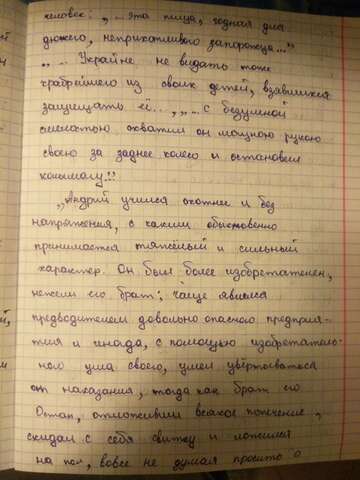 человек: „...эта пища, годная для
дюжего, неприхотливого запорожца..."
„... Украйне не видать тоже
храбрейшего из своих детей, взявшихся
защищать её..., „... с безумной
смелостью схватил он мощною рукою
своею за заднее колесо и остановил
колымагу."
„Андрий учился охотнее и без
напряжения, с каким обыкновенно
принимается тяжёлый и сильный
характер. Он был более изобретателен,
нежели его брат; чаще являлся
предводителем довольно опасного предприя-
тия и иногда, с помощью изобретатель-
ного ума своего, умел увёртываться
от наказания, тогда как брат его
Остап, отложивши всякое попечение,
скидал с себя свитку и ложился
на пол, вовсе не думая просить о